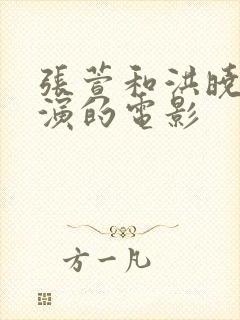 張萱和洪曉
演的電影
方一凡